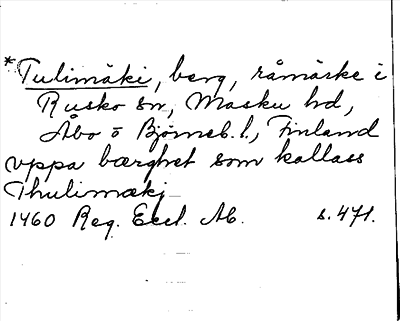 *Tulimäki, berg, råmärke i
Rusko sn, Masku hd,
Åbo o Björneb. l., Finland
vppa bærghet som kallass
Thulimækj
1460 Reg. Eccl. Ab. s. 471.